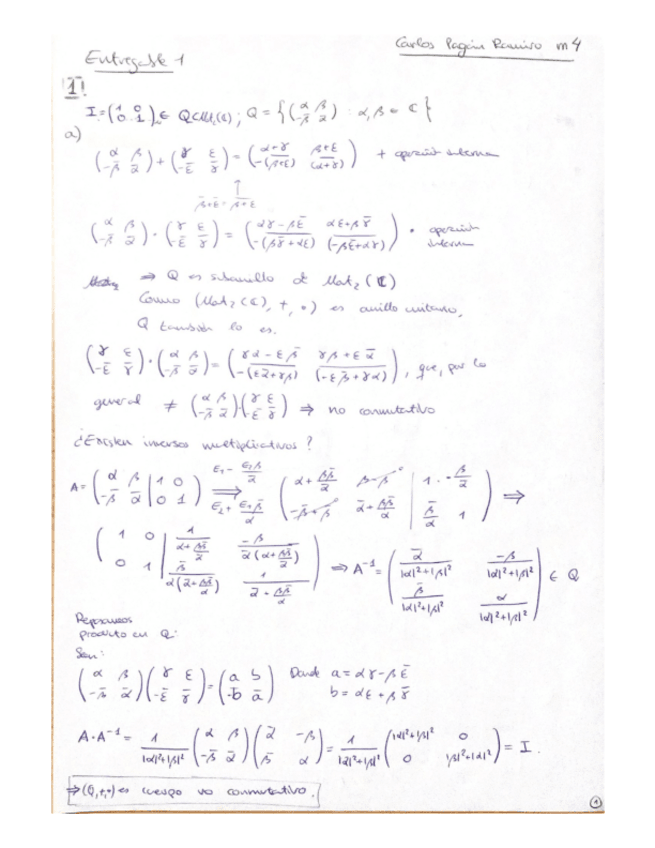 Carlos Pagán Ramiro m4
Entregable 1
1.
I = (1 0; 0 1) ∈ Q ⊂ M₂(ℂ); Q = {(α β; -β̄ ᾱ) : α, β ∈ ℂ}
a)
(α β; -β̄ ᾱ) + (γ ε; -ε̄ γ̄) = (α+γ β+ε; -(β+ε)‾ (α+γ)‾) + operación interna
↑
β̄+ε̄ = (β+ε)‾
(α β; -β̄ ᾱ) · (γ ε; -ε̄ γ̄) = (αγ-βε̄ αε+βγ̄; -(βγ̄+αε)‾ (-βε̄+αγ)‾) • operación interna
⇒ Q es subanillo de Mat₂(ℂ)
Como (Mat₂(ℂ), +, •) es anillo unitario,
Q también lo es.
(γ ε; -ε̄ γ̄) · (α β; -β̄ ᾱ) = (γα-εβ̄ γβ+εᾱ; -(εᾱ+γβ)‾ (-εβ̄+γα)‾), que, por lo
general ≠ (α β; -β̄ ᾱ)·(γ ε; -ε̄ γ̄) ⇒ no conmutativo
¿Existen inversos multiplicativos?
A = (α β | 1 0; -β̄ ᾱ | 0 1) ⇒ (α+ββ̄/ᾱ β-β | 1 -β/ᾱ; -β̄+β̄ ᾱ+ββ̄/α | β̄/α 1) ⇒
(1 0 | 1/(α+ββ̄/ᾱ) -β/(ᾱ(α+ββ̄/ᾱ)); 0 1 | β̄/(α(ᾱ+ββ̄/α)) 1/(ᾱ+ββ̄/α)) ⇒ A⁻¹ = (ᾱ/(|α|²+|β|²) -β/(|α|²+|β|²); β̄/(|α|²+|β|²) α/(|α|²+|β|²)) ∈ Q
Repasemos
producto en Q:
Sean:
(α β; -β̄ ᾱ)(γ ε; -ε̄ γ̄) = (a b; -b̄ ā) Donde a = αγ-βε̄
b = αε+βγ̄
A·A⁻¹ = 1/(|α|²+|β|²) (α β; -β̄ ᾱ)(ᾱ -β; β̄ α) = 1/(|α|²+|β|²) (|α|²+|β|² 0; 0 |β|²+|α|²) = I.
⇒ (Q,+,•) es cuerpo no conmutativo.
1